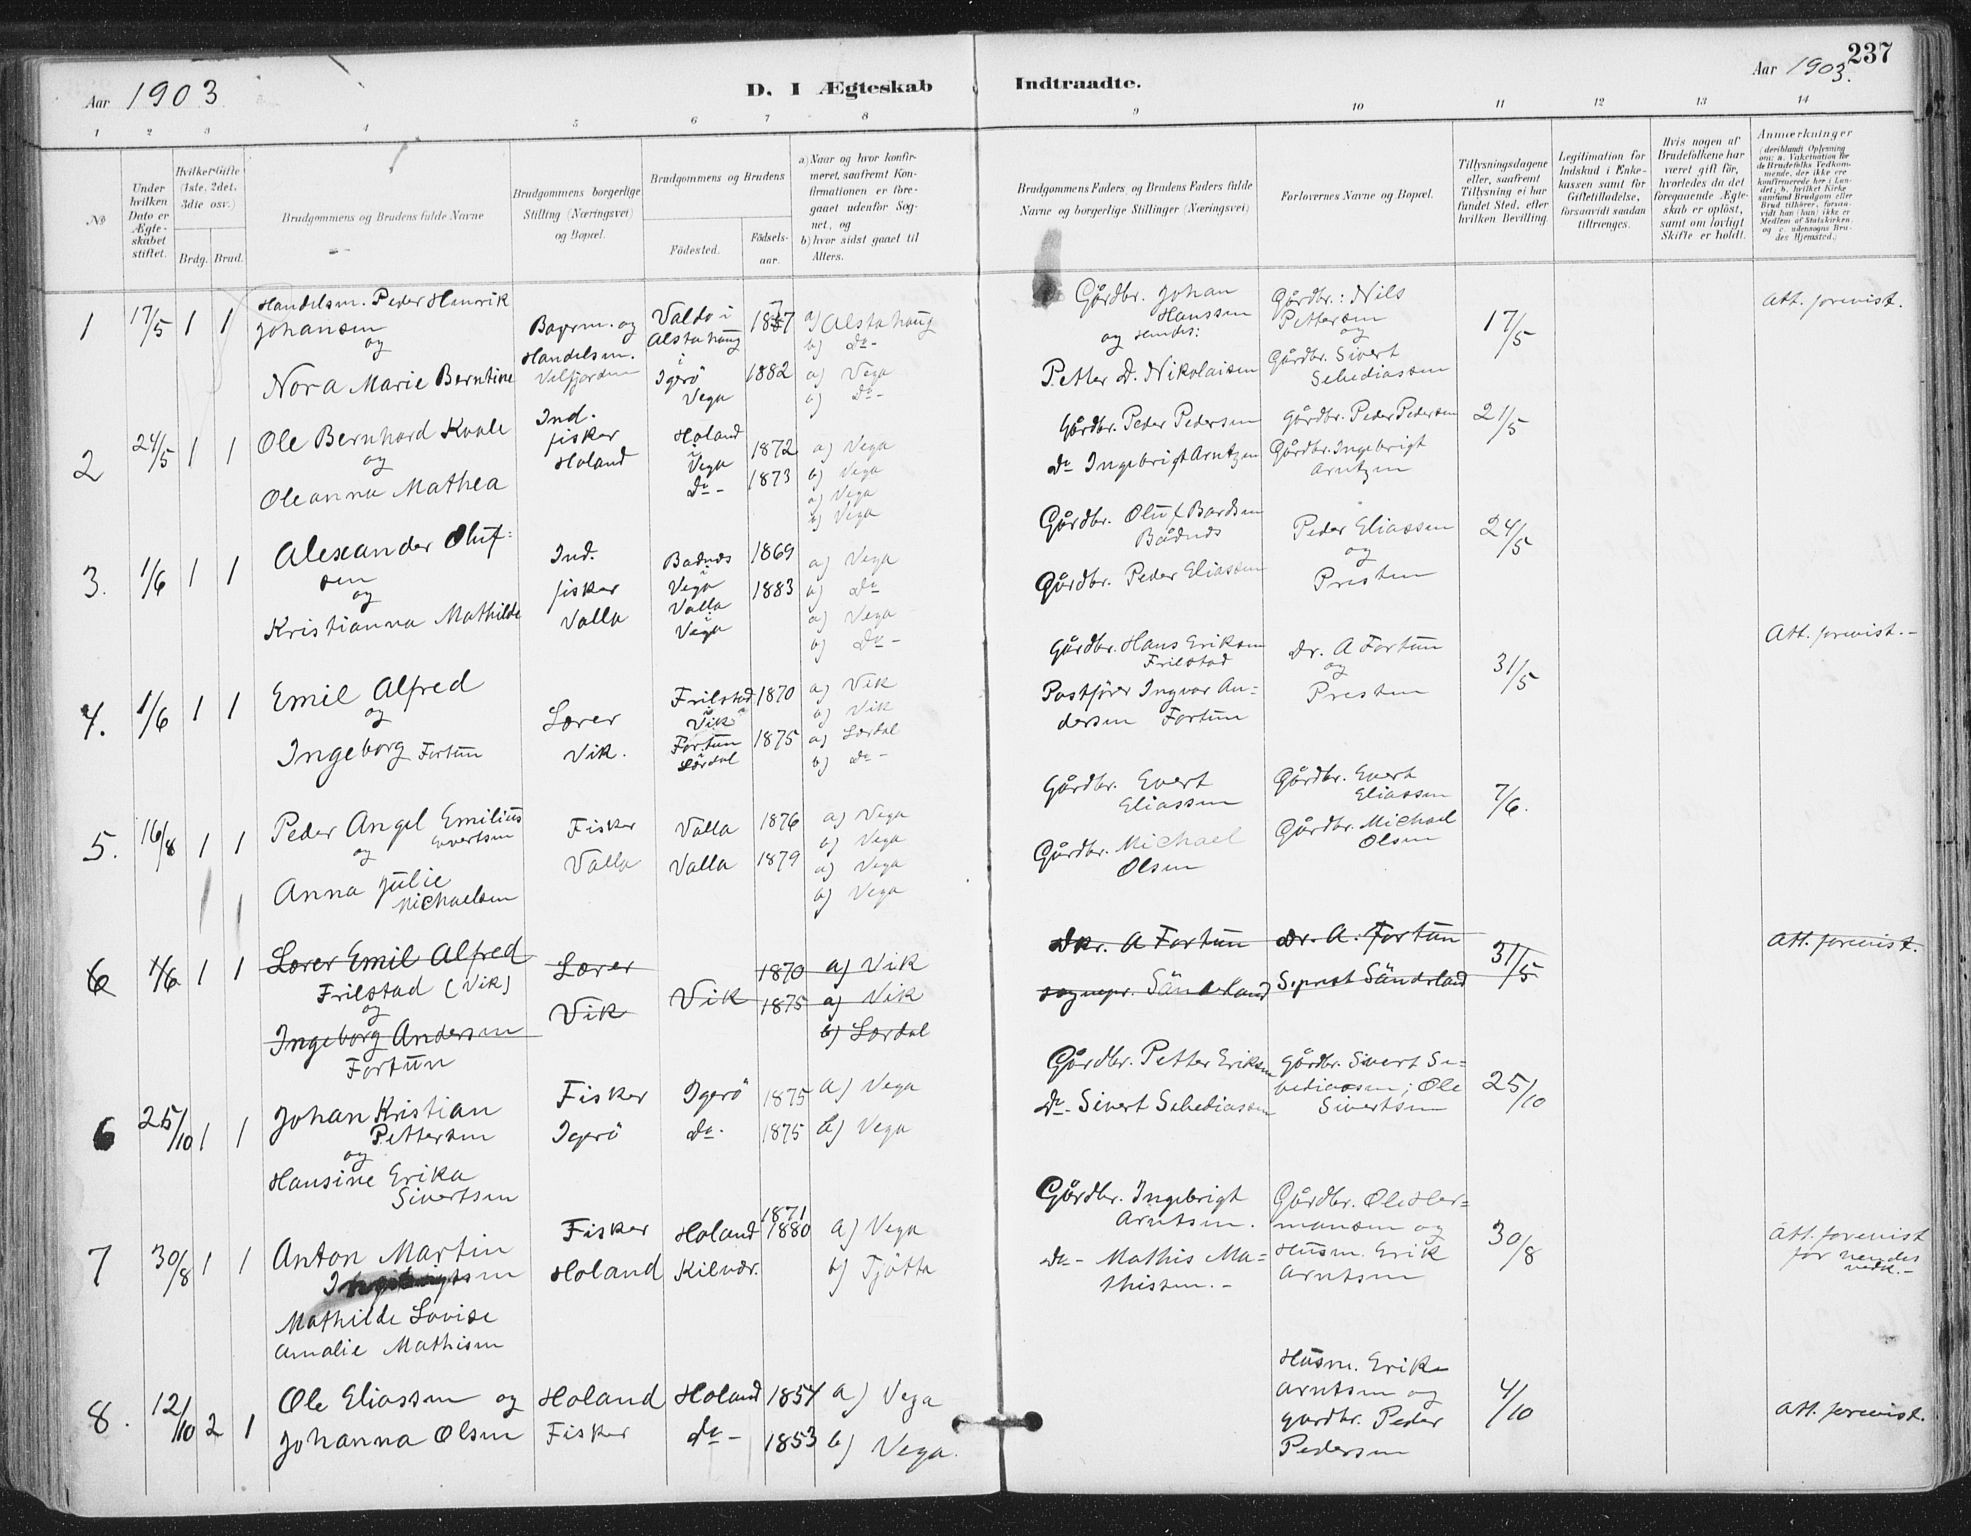 237
Aar 1903
D. I Ægteskab Indtraadte.
Aar 1903.
1 2 3 4 5 6 7 8 9 10 11 12 13 14
No
Under hvilken Dato er Ægteskabet stiftet.
Hvilket Gifte (1ste, 2det, 3dte osv.)
Brdg. Brud.
Brudgommens og Brudens fulde Navne
Brudgommens borgerlige Stilling (Næringsvei) og Bopæl.
Brudgommens og Brudens
Födested.
Födsels-aar.
a) Naar og hvor konfirmeret, saafremt Konfirmationen er foregaaet udenfor Sognet, og
b) hvor sidst gaaet til Alters.
Brudgommens Faders og Brudens Faders fulde Navne og borgerlige Stillinger (Næringsvei)
Forlovernes Navne og Bopæl.
Tillysningsdagene eller, saafremt Tillysning ei har fundet Sted, efter hvilken Bevilling.
Legitimation for Indskud i Enkekassen samt for Giftetilladelse, forsaavidt saadan tiltrænges.
Hvis nogen af Brudefolkene har været gift för, hvorledes da det foregaaende Ægteskab er oplöst, samt om lovligt Skifte er holdt.
Anmærkninger (deriblandt Oplysning om: a. Vakcination for de Brudefolks Vedkommende, der ikke ere konfirmerede her i Landet; b. hvilket Kirkesamfund Brudgom eller Brud tilhörer, forsaavidt han (hun) ikke er Medlem af Statskirken, og c. udensogns Brudes Hjemsted.)
1 17/5 1 1
Handelsm. Peder Henrik
Johansen
og
Nora Marie Berntine
Bopem. og
Handelsm.
Velfjorden
Valdo i
Alstahaug
i
Igerö
Vega
1882
a) Alstahaug
b) Do-
a) Vega
b) Do-
Gårdbr. Johan
Hanssen
og Hendes:
Petter D. Nikolaisen
Gårdbr.: Nils
Pettersen
og
Gårdbr. Sivert
Sebediassen
17/5
Att. forevist.
2 24/5 1 1
Ole Bernhard Kvale
og
Oleanna Mathea
Ind.
fisker
Holand
Holand
i
Vega
Do-
1872
1873
a) Vega
b) Vega
a) Vega
b) Vega
Gårdbr. Peder Pedersen
Do Ingebrigt Arntzen
Gårdbr. Peder Pedersen
Gårdbr. Ingebrigt
Arntzen
21/5
3. 1/6 1 1
Alexander Oluf-
sen
og
Kristianna Mathilde
Ind.
fisker
Valla
Bådnds
i
Vega
Valla
i
Vega
1869
1883
a) Vega
b) Do
a) Vega
b) Do-
Gårdbr. Oluf Bardsen
Bådnds
Gårdbr. Peder Eliassen
Peder Eliassen
og
Presten
24/5
4. 1/6 1 1
Emil Alfred
og
Ingeborg Fortun
Lærer
Vik.
Frilstad
i
Vik
Fortun
i
Lærdal
1870
1875
a) Vik
b) Vik
a) Lærdal
b) Do-
Gårdbr. Hans Eriksen
Frilstad
Postförer Ingvar An-
dersen Fortun
Dr. A Fortun
og
Presten
31/5
Att. forevist.-
5. 16/8 1 1
Peder Angel Emilius
Evertsen
og
Anna Julie
Michaelsen
Fisker
Valla
Valla
Valla
1876
1879
a) Vega
b) Vega
a) Vega
b) Vega
Gårdbr. Evert
Eliassen
Gårdbr. Michael
Olsen
Gårdbr. Evert
Eliassen
Gårdbr. Michael
Olsen
7/6.
6 1/6 1 1
Lærer Emil Alfred
Frilstad (Vik)
og
Ingeborg Andersen
Fortun
Lærer
Vik
Vik
1870
1875
a) Vik
a) Vik
b) Lærdal
Dr. A Fortun
sognepr. Sänderland
Dr. A. Fortun
S.prest Sänderland
31/5
Att. forevist.
6 25/10 1 1
Johan Kristian
Pettersen
og
Hansine Erika
Sivertsen
Fisker
Igerö
Igerö
do.
1875
1875
a) Vega
b) Vega
Gårdbr. Petter Eriksen
Do- Sivert Sebediassen
Gårdbr. Sivert Se-
bediassen; Ole
Sivertsen
25/10
7 30/8 1 1
Anton Martin
Ingebrigtsen
Mathilde Lovise
Amalie Mathisen
Fisker
Holand
Holand
Kilvær.
1871
1880
a) Vega
b) Tjötta
Gårdbr. Ingebrigt
Arntsen.
Do- Mathis Ma-
thissen.-
Gårdbr. Ole Her-
mansen og
Husm. Erik
Arntsen
30/8
Att. forevist
for hendes
vedk.-
8. 12/10 2 1
Ole Eliassen og
Johanna Olsen
Holand
Fisker
Holand
do-
1854
1853
a) Vega
b) Vega.
Husm. Erik
Arntsen og
gardbr. Peder
Pedersen
4/10
Att. forevist.